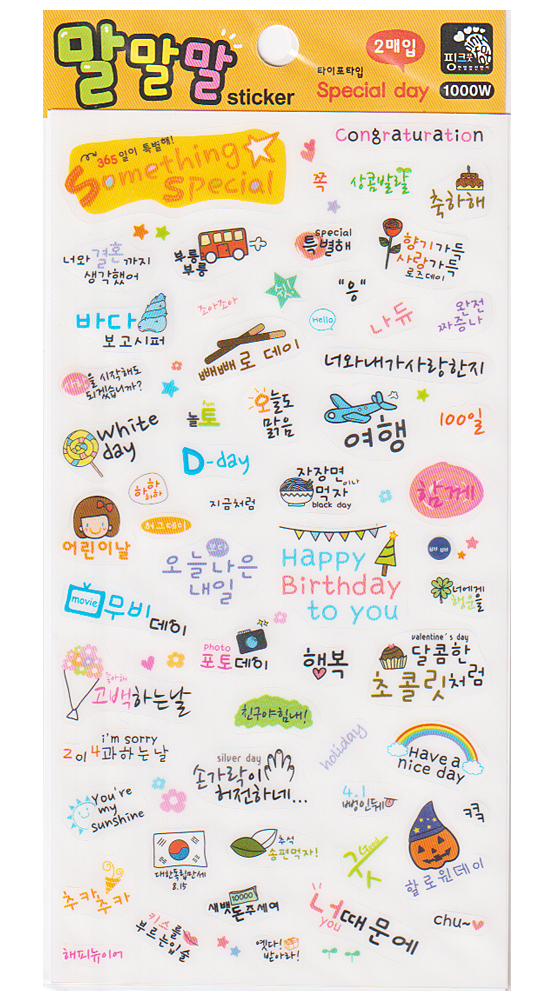 말말말
sticker
2매입
타이포타입
Special day
핑크풋
1000W
Congraturation
365일이 특별해!
Something
Special
꼭
상콤발랄
축하해
너와 결혼까지
생각했어
부릉
부릉
special
특별해
향기가득
사랑가득
로즈데이
"응"
바다
보고시퍼
조아조아
Hello
나듀
완전
짜증나
빼빼로 데이
너와내가사랑한지
을 시작해도
되겠습니까?
white
day
늘
토
오늘도
맑음
여행
100일
D-day
자장면이나
먹자
black day
함께
하하
히히
지금처럼
어린이날
허그데이
오늘보다나은
내일
Happy
Birthday
to you
너에게
행운을
movie
무비
데이
photo
포토데이
행복
valentine's day
달콤한
초콜릿처럼
좋아해
고백하는날
친구야힘내!
i'm sorry
2014과하는날
silver day
손가락이
허전하네...
holiday
Have a
nice day
You're
my
sunshine
4.1
뻥인뒈
ㅋㅋ
대한독립만세
8.15
추석
송편먹자!
Good
굿
할로윈데이
추카
추카
10000
새뱃돈주세여
너때문에
you
chu~
키스를
부르는입술
옛다!
받아라!
해피뉴이어